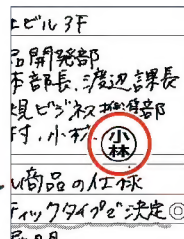 ビル3F
品開発部
本部長、渡辺課長
規ビジネス推進部
付、小林
小林
商品の仕様
ティックタイプで決定◎